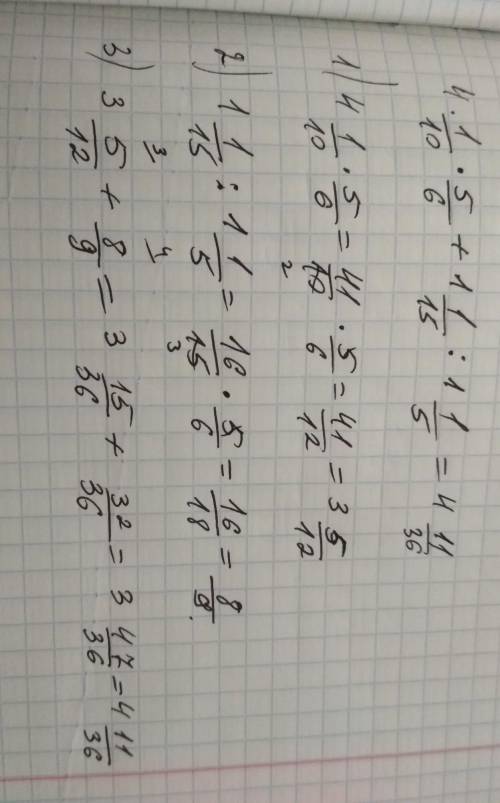 4 1/10 · 5/6 + 1 1/15 : 1 1/5 = 4 11/36
1) 4 1/10 · 5/6 = 41/10 2 · 5/6 = 41/12 = 3 5/12
2) 1 1/15 : 1 1/5 = 16/15 3 · 5/6 = 16/18 = 8/9.
3) 3 5/12 3 + 8/9 4 = 3 15/36 + 32/36 = 3 47/36 = 4 11/36